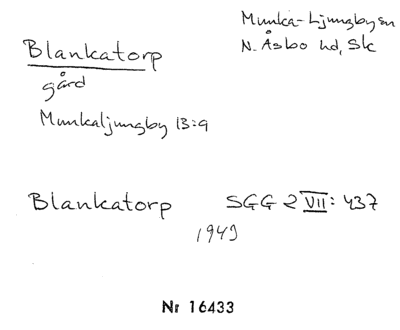 Munka-Ljungby sn
N. Åsbo hd, Sk
Blankatorp
gård
Munkaljungby 13:9
Blankatorp SGG 2 VII: 437
1949
Nr 16433